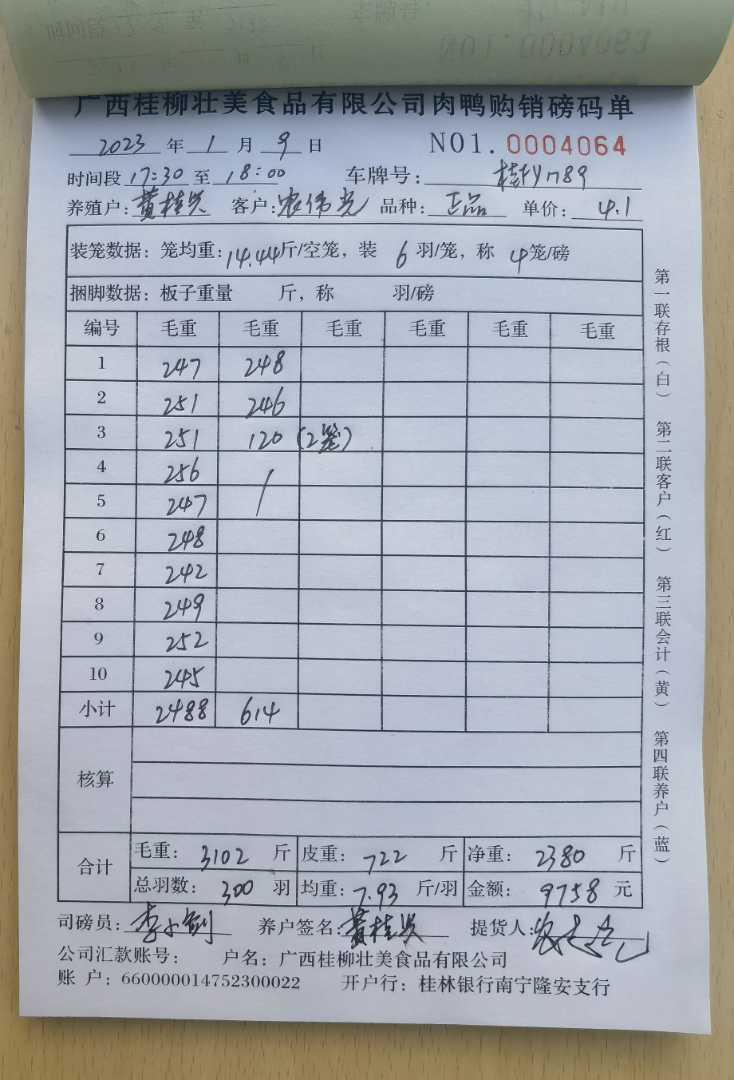 广西桂柳壮美食品有限公司肉鸭购销磅码单
2023 年 1 月 9 日 NO1. 0004064
时间段 17:30 至 18:00 车牌号:
养殖户: 黄桂兴 客户: 农伟光 品种: 正品 单价: 4.1
装笼数据: 笼均重: 14.44斤/空笼, 装 6 羽/笼, 称 4笼/磅
捆脚数据: 板子重量 斤, 称 羽/磅
编号 毛重 毛重 毛重 毛重 毛重 毛重
1 247 248
2 251 246
3 251 120 (2笼)
4 256 /
5 247
6 248
7 242
8 249
9 252
10 245
小计 2488 614
核算
合计 毛重: 3102 斤 皮重: 722 斤 净重: 2380 斤
总羽数: 300 羽 均重: 7.93 斤/羽 金额: 9758 元
司磅员: 李小 养户签名: 黄桂兴 提货人:
公司汇款账号: 户名: 广西桂柳壮美食品有限公司
账 户: 660000014752300022 开户行: 桂林银行南宁隆安支行
第一联存根(白) 第二联客户(红) 第三联会计(黄) 第四联养户(蓝)